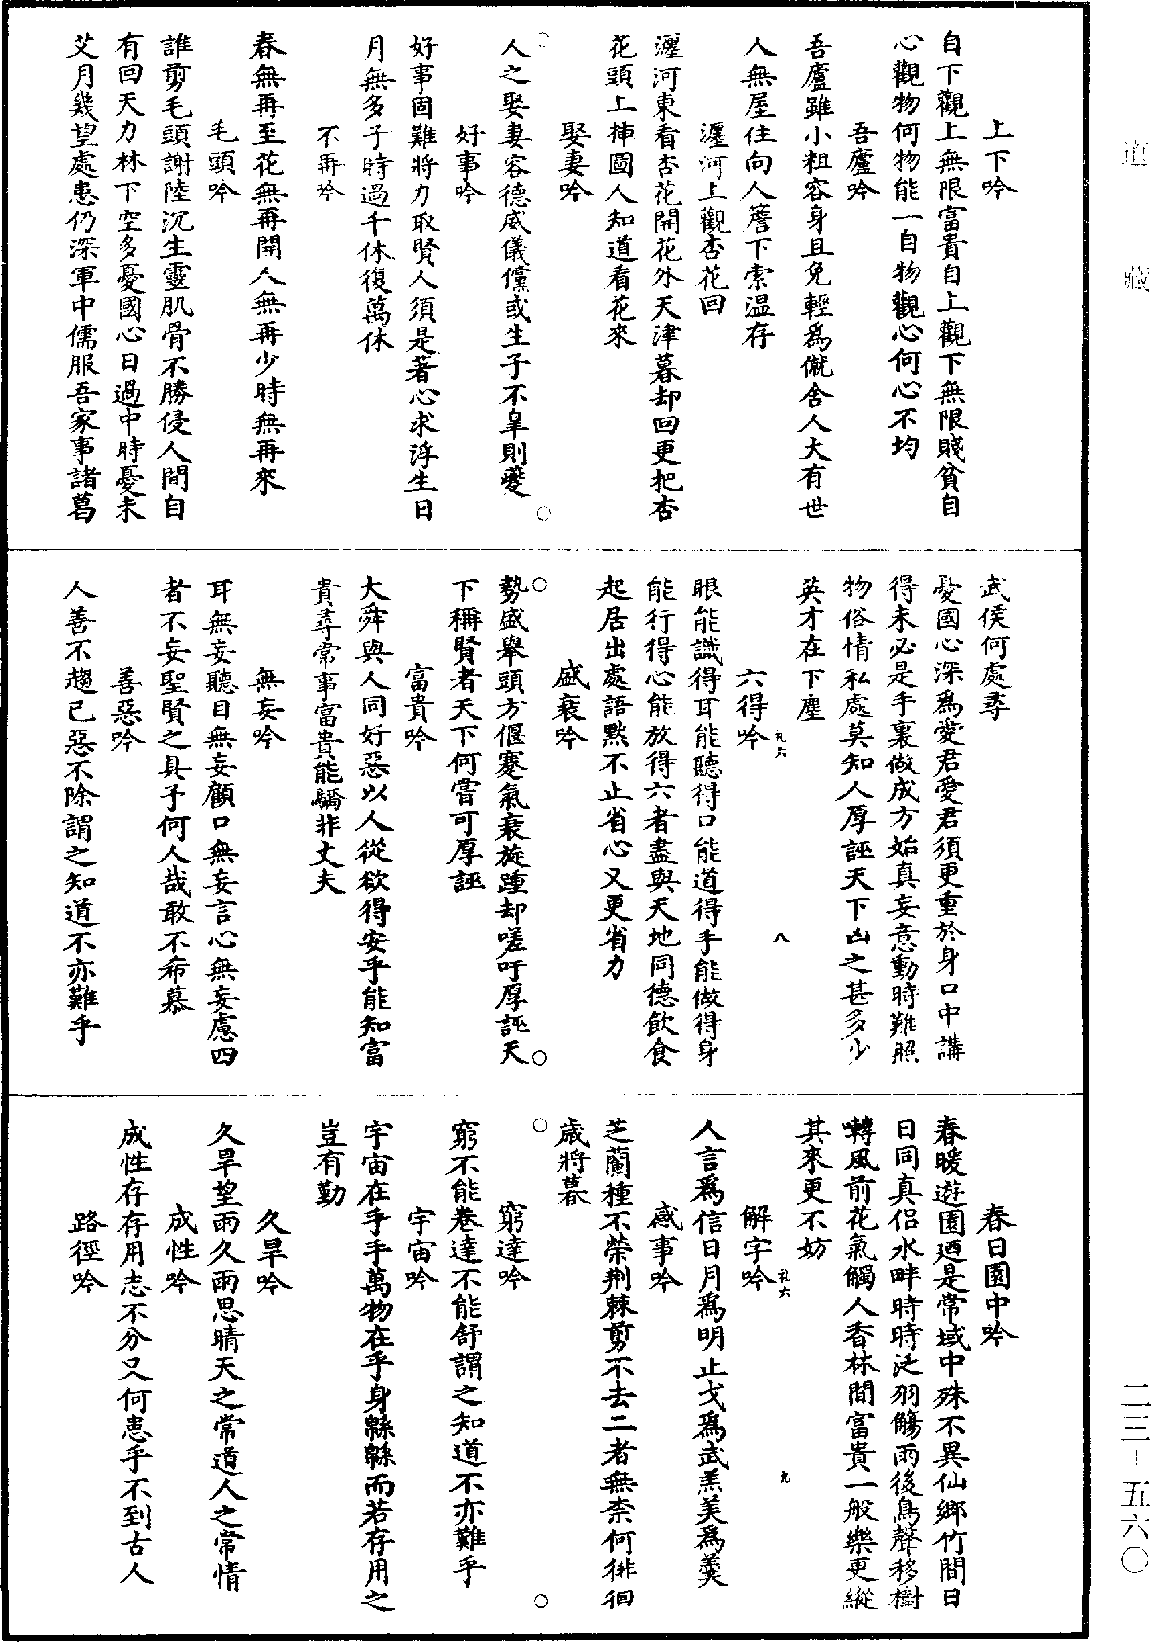 上下吟
自下觀上無限富貴自上觀下無限賤貧自
心觀物何物能一自物觀心何心不均
吾廬吟
吾廬雖小粗容身且免輕爲僦舍人大有世
人無屋住向人簷下索温存
瀍河上觀杏花回
瀍河東看杏花開花外天津暮却回更把杏
花頭上揷圖人知道看花來
娶妻吟
人之娶妻容德威儀儻或生子不臯則夔
好事吟
好事固難將力取賢人須是著心求浮生日
月無多子時過千休復萬休
不再吟
春無再至花無再開人無再少時無再來
毛頭吟
誰剪毛頭謝陸沉生靈肌骨不勝侵人間自
有回天力林下空多憂國心日過中時憂未
艾月幾望處患仍深軍中儒服吾家事諸葛
武侯何處尋
憂國心深爲愛君愛君須更重於身口中講
得未必是手裏做成方始真妄意動時難照
物俗情私處莫知人厚誣天下凶之甚多少
英才在下塵
六得吟
眼能識得耳能聽得口能道得手能做得身
能行得心能放得六者盡與天地同德飲食
起居出處語默不止省心又更省力
盛衰吟
勢盛舉頭方偃蹇氣衰旋踵却嗟吁厚誣天
下稱賢者天下何嘗可厚誣
富貴吟
大舜與人同好惡以人從欲得安乎能知富
貴尋常事富貴能驕非丈夫
無妄吟
耳無妄聽目無妄顧口無妄言心無妄慮四
者不妄聖賢之具予何人哉敢不希慕
善惡吟
人善不趨己惡不除謂之知道不亦難乎
春日園中吟
春暖遊園迺是常域中殊不異仙鄉竹間日
日同真侣水畔時時泛羽觴雨後鳥聲移樹
囀風前花氣觸人香林間富貴一般樂更縱
其來更不妨
解字吟
人言爲信日月爲明止戈爲武羔美爲羹
感事吟
芝蘭種不榮荆棘剪不去二者無柰何徘徊
歳將暮
窮達吟
窮不能卷達不能舒謂之知道不亦難乎
宇宙吟
宇宙在乎手萬物在乎身緜緜而若存用之
豈有勤
久旱吟
久旱望雨久雨思晴天之常道人之常情
成性吟
成性存存用志不分又何患乎不到古人
路徑吟
八
九
道藏
二三-五六〇